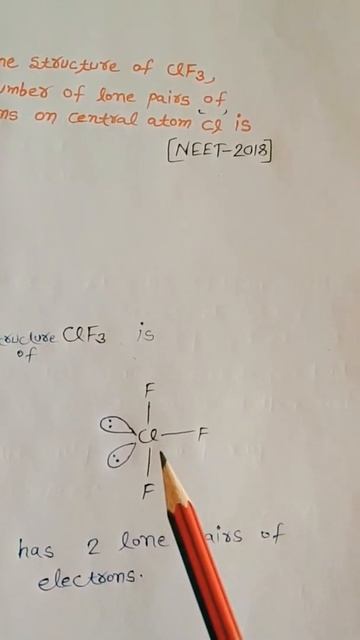 ne structure of ClF3,
umber of lone pairs of
ns on central atom Cl is
[NEET-2018]
ructure ClF3 is
of
F
Cl — F
F
has 2 lone airs of
electrons.